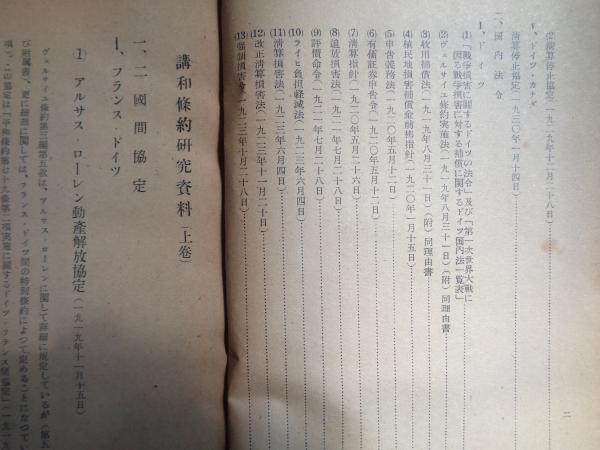 (2) 清算停止協定(一九二九年十二月二十八日)
V、ドイツ・カナダ
清算停止協定(一九三〇年一月十四日)
二、國内法令
I、ドイツ
(1)「戰爭損害に關するドイツの法令」及び「第一次世界大戰に
因る戰爭損害に対する補償に関するドイツ国内法一覧表」
(2) ヴェルサイユ條約実施法(一九一九年八月三十一日)(附)同理由書
(3) 收用補償法(一九一九年八月三十一日)(附)同理由書
(4) 植民地損害補償金前拂指針(一九二〇年一月十五日)
(5) 申告義務法
(6) 有価証券申告令
(7) 清算指針(一九二〇年五月二十六日)
(8) 追放損害法(一九二一年七月二十八日)
(9) 評價命令(一九二一年七月二十八日)
(10) ライヒ負担軽減法(一九二三年六月四日)
(11) 清算損害法(一九二三年六月四日)
(12) 改正清算損害法(一九二三年十一月二十日)
(13) 損害令(一九二三年十月二十八日)
二
講和條約研究資料(上卷)
一、二國間協定
I、フランス・ドイツ
(1) アルサス・ローレン動產解放協定(一九一九年十一月十五日)
ヴェルサイユ條約第三編第五款は、アルサス・ローレンに関して詳細に規定しているが(第五
び附屬書、更に細目に関しては、フランス・ドイツ間の特別條約によつて定めることになつてい
項)、この協定は「平和條約第七十九條第二項実施に関するドイツ・フランス間協定」(一九一九